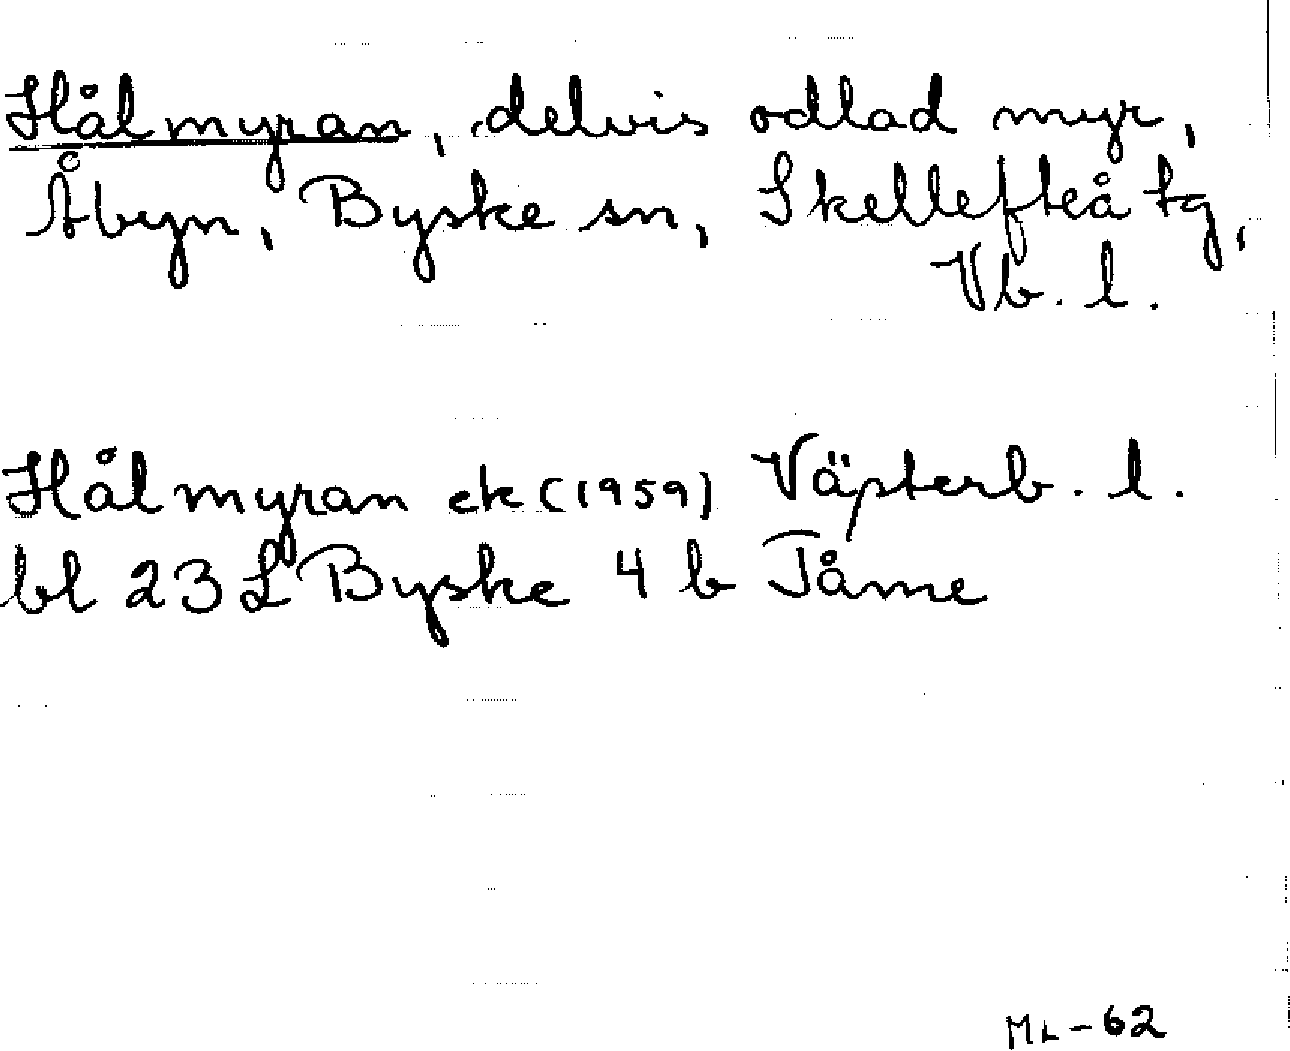 Hålmyran, delvis odlad myr,
Åbyn, Byske sn, Skellefteå tg,
Vb. l.
Hålmyran ek (1959) Västerb. l.
bl 23 L Byske 4 b Tåme
ML-62